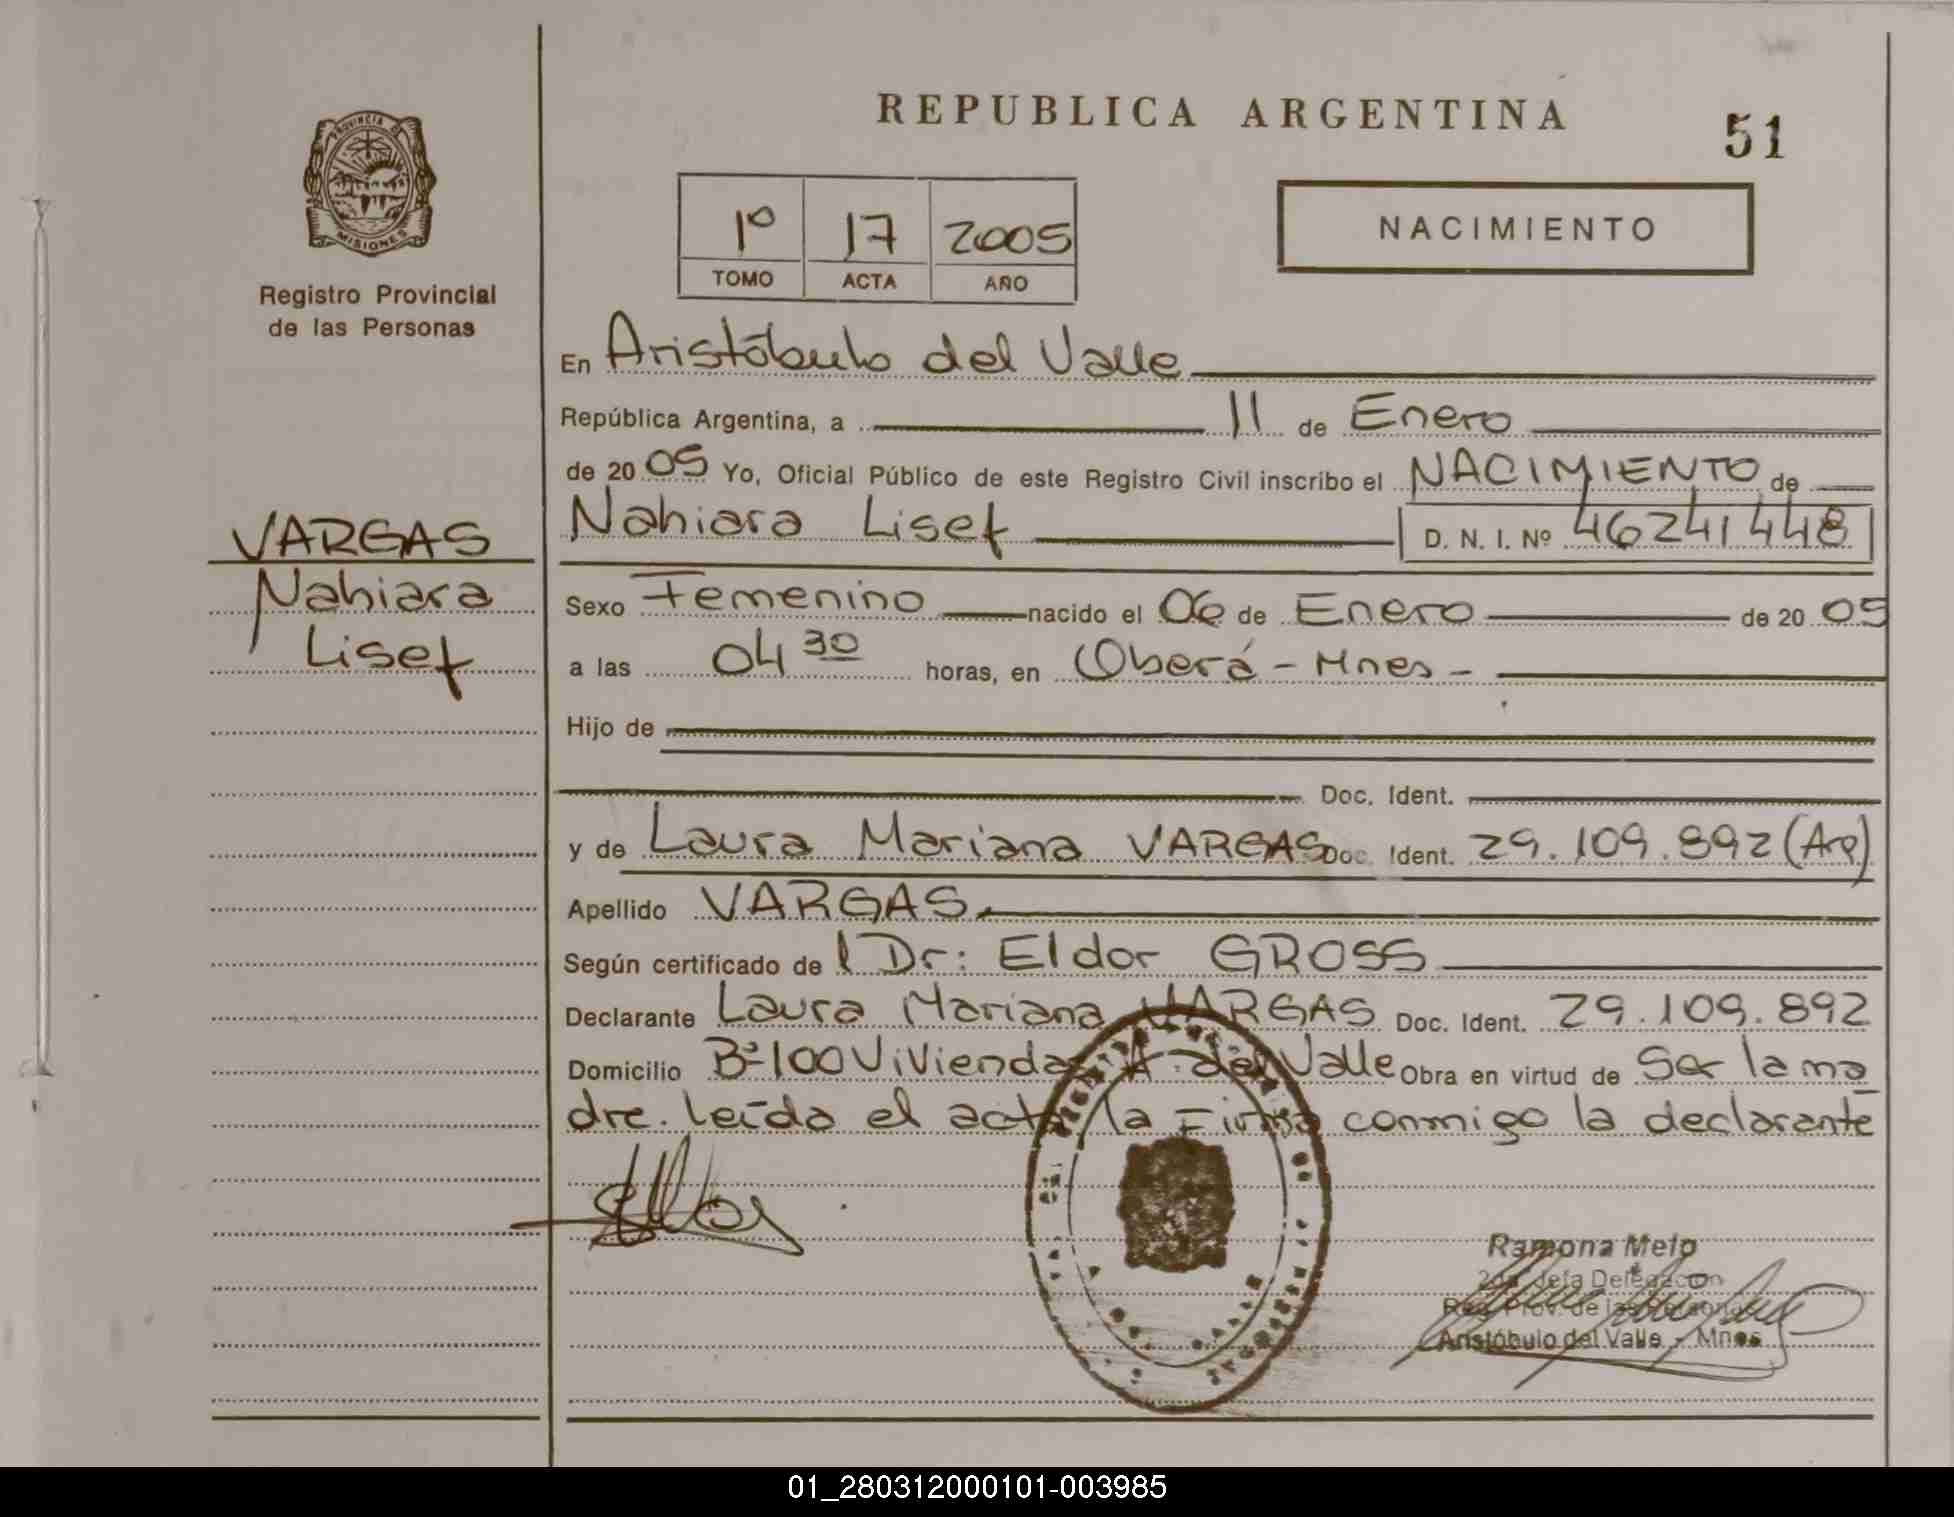 REPUBLICA ARGENTINA
51
PROVINCIA DE
MISIONES
Registro Provincial
de las Personas
1º 17 2005
TOMO ACTA AÑO
NACIMIENTO
En Aristóbulo del Valle
República Argentina, a 11 de Enero
de 20 05 Yo, Oficial Público de este Registro Civil inscribo el NACIMIENTO de
Nahiara Liset D. N. I. Nº 46241448
VARGAS
Nahiara
Liset
Sexo Femenino nacido el 06 de Enero de 20 05
a las 04 30 horas, en Oberá - Mnes -
Hijo de
Doc. Ident.
y de Laura Mariana VARGAS Doc. Ident. 29.109.892 (Arg)
Apellido VARGAS
Según certificado del Dr: Eldor GROSS
Declarante Laura Mariana VARGAS Doc. Ident. 29.109.892
Domicilio Bº 100 Viviendas A. del Valle Obra en virtud de Ser la ma
dre. leída el acta, la Firma conmigo la declarante
Ramona Melo
2da. Jefa Delegación
Reg. Prov. de las Personas
Aristóbulo del Valle - Mnes
01_280312000101-003985